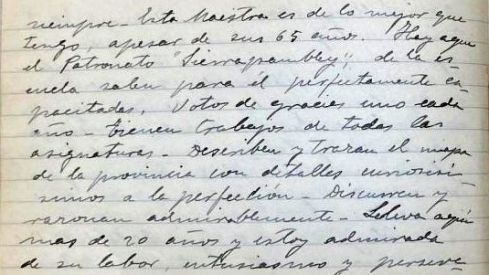 siempre - Esta Maestra es de lo mejor que
tengo, apesar de sus 65 años. Hay aquí
el Patronato "Sierrapambley"; de la es-
cuela salen para él perfectamente ca-
pacitadas. Votos de gracias uno cada
año - tienen trabajos de todas las
asignaturas - Describen y trazan el mapa
de la provincia con detalles curiosísi-
simos a la perfección - Discurren y
razonan admirablemente - Lleva aquí
mas de 20 años y estoy admirada
de su labor, entusiasmo y perseve